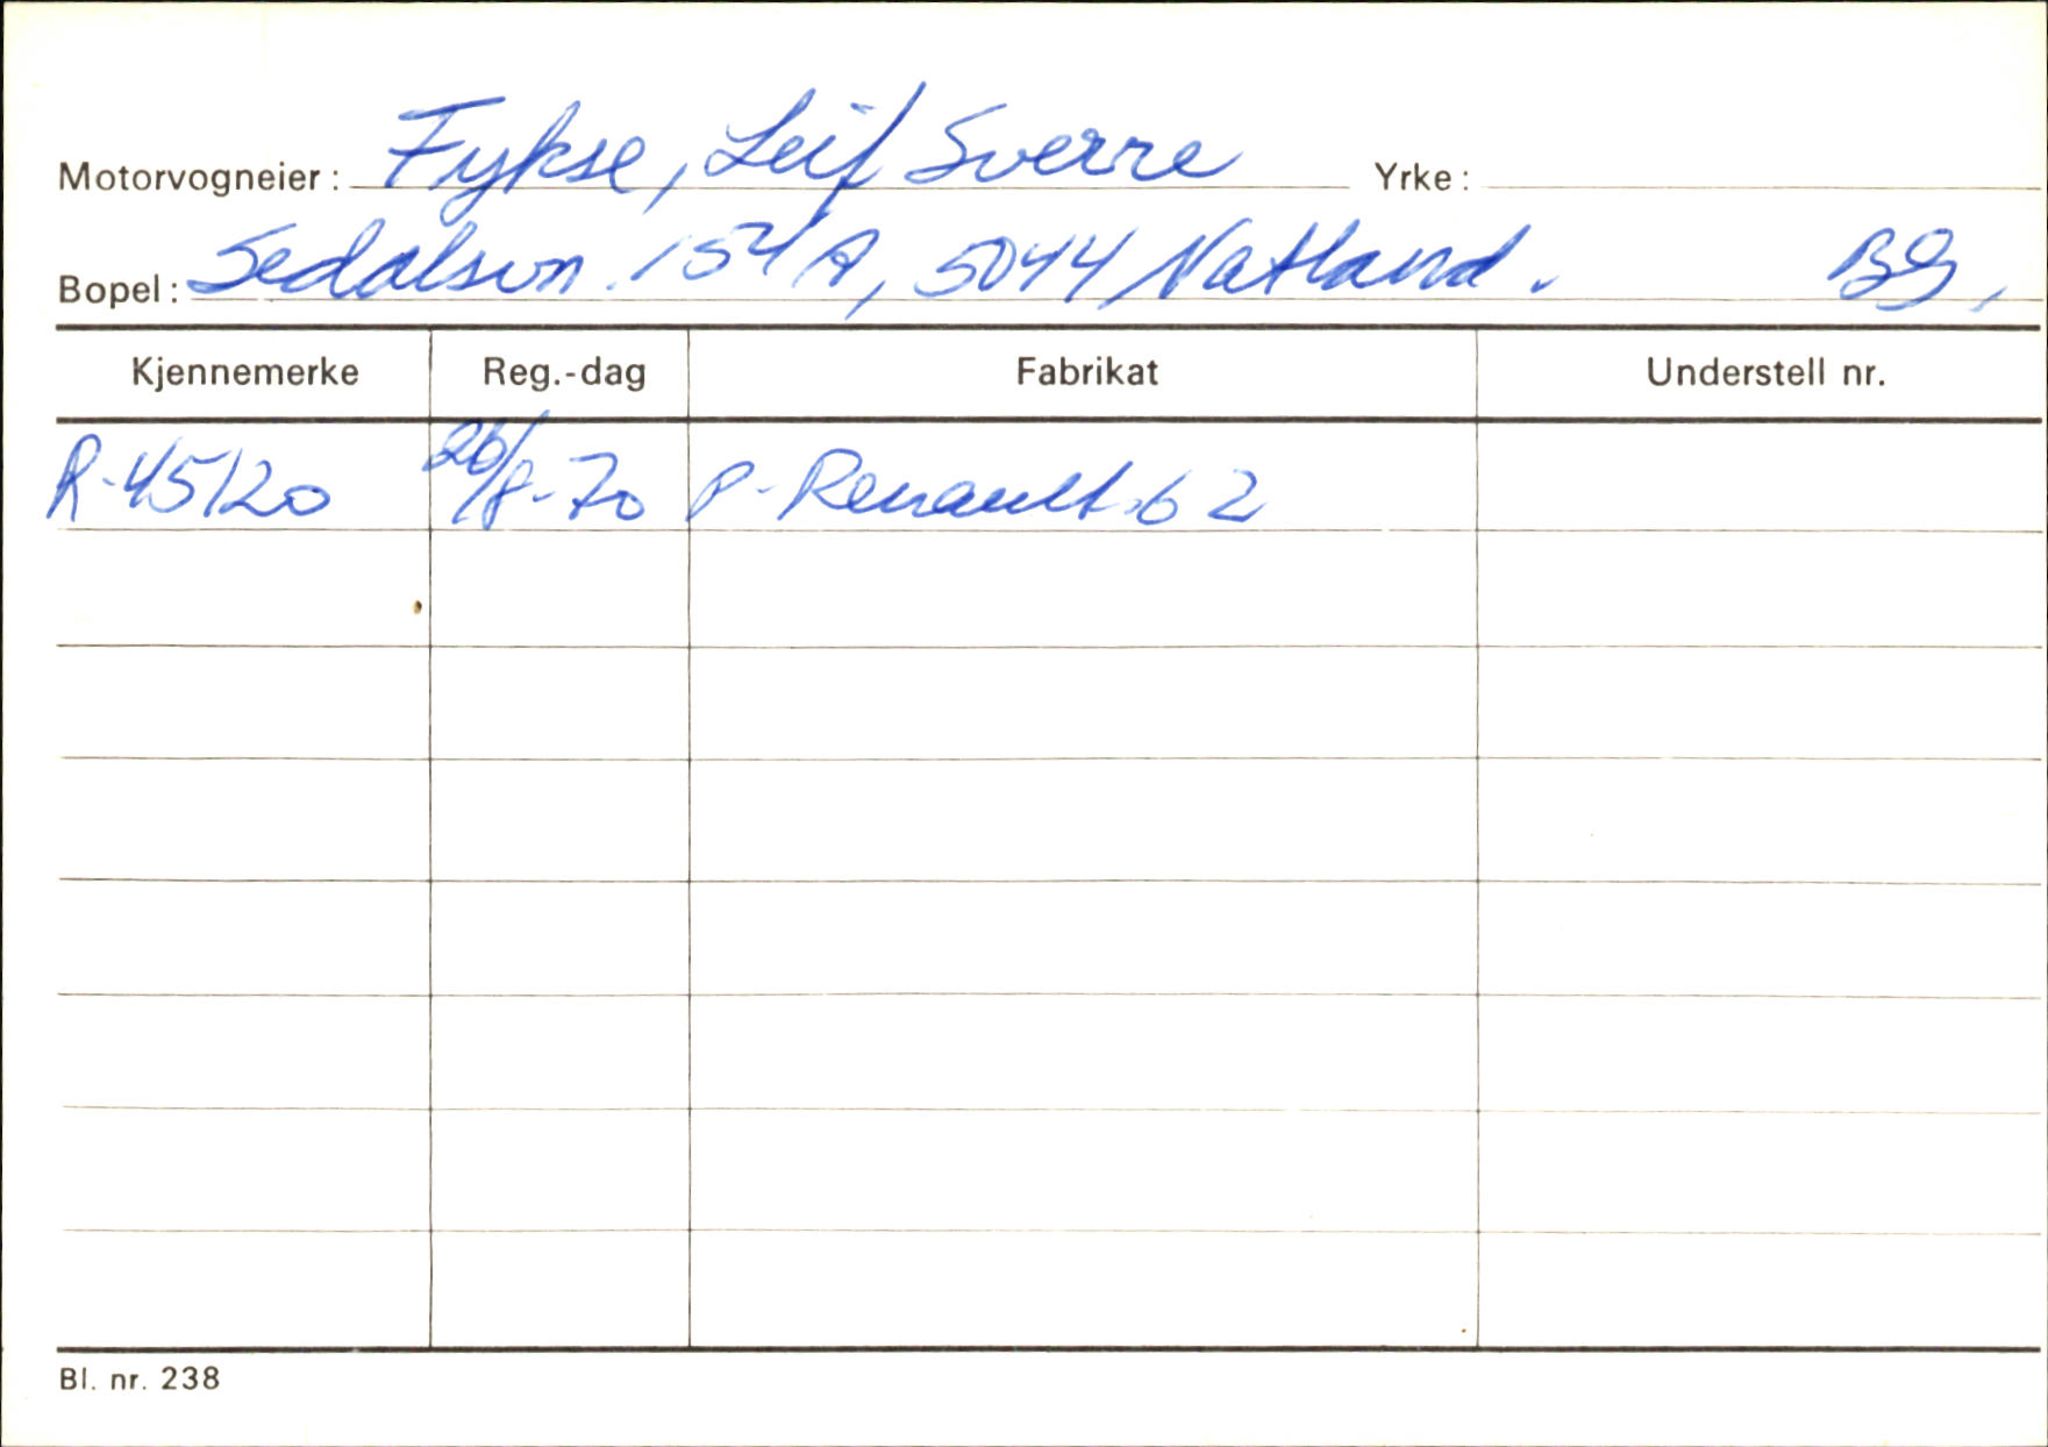 Motorvogneier: Fykse, Leif Sverre Yrke:
Bopel: Sedalsvn. 154A, 5044 Natland. BG.
Kjennemerke Reg.-dag Fabrikat Understell nr.
R-45120 26/8-70 P-Renault.62
Bl. nr. 238